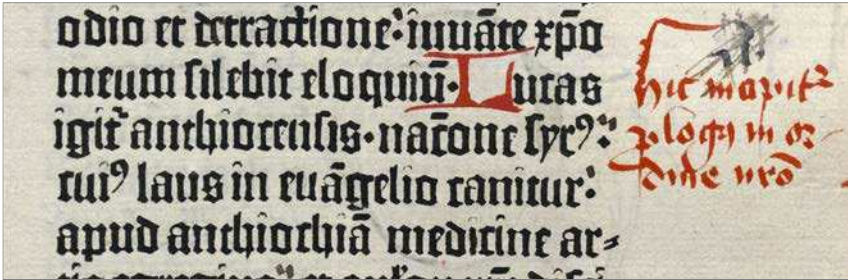 odio et detractione: iuuāte xp̄o
meum silebit eloquiū. Lucas
igit᷑ anthiocensis. nac̄one syrꝰ:
cuiꝰ laus in euāgelio canitur:
apud anthiochiā medicine ar-
Hic incipit
plogꝰ in or
dine nr̄o